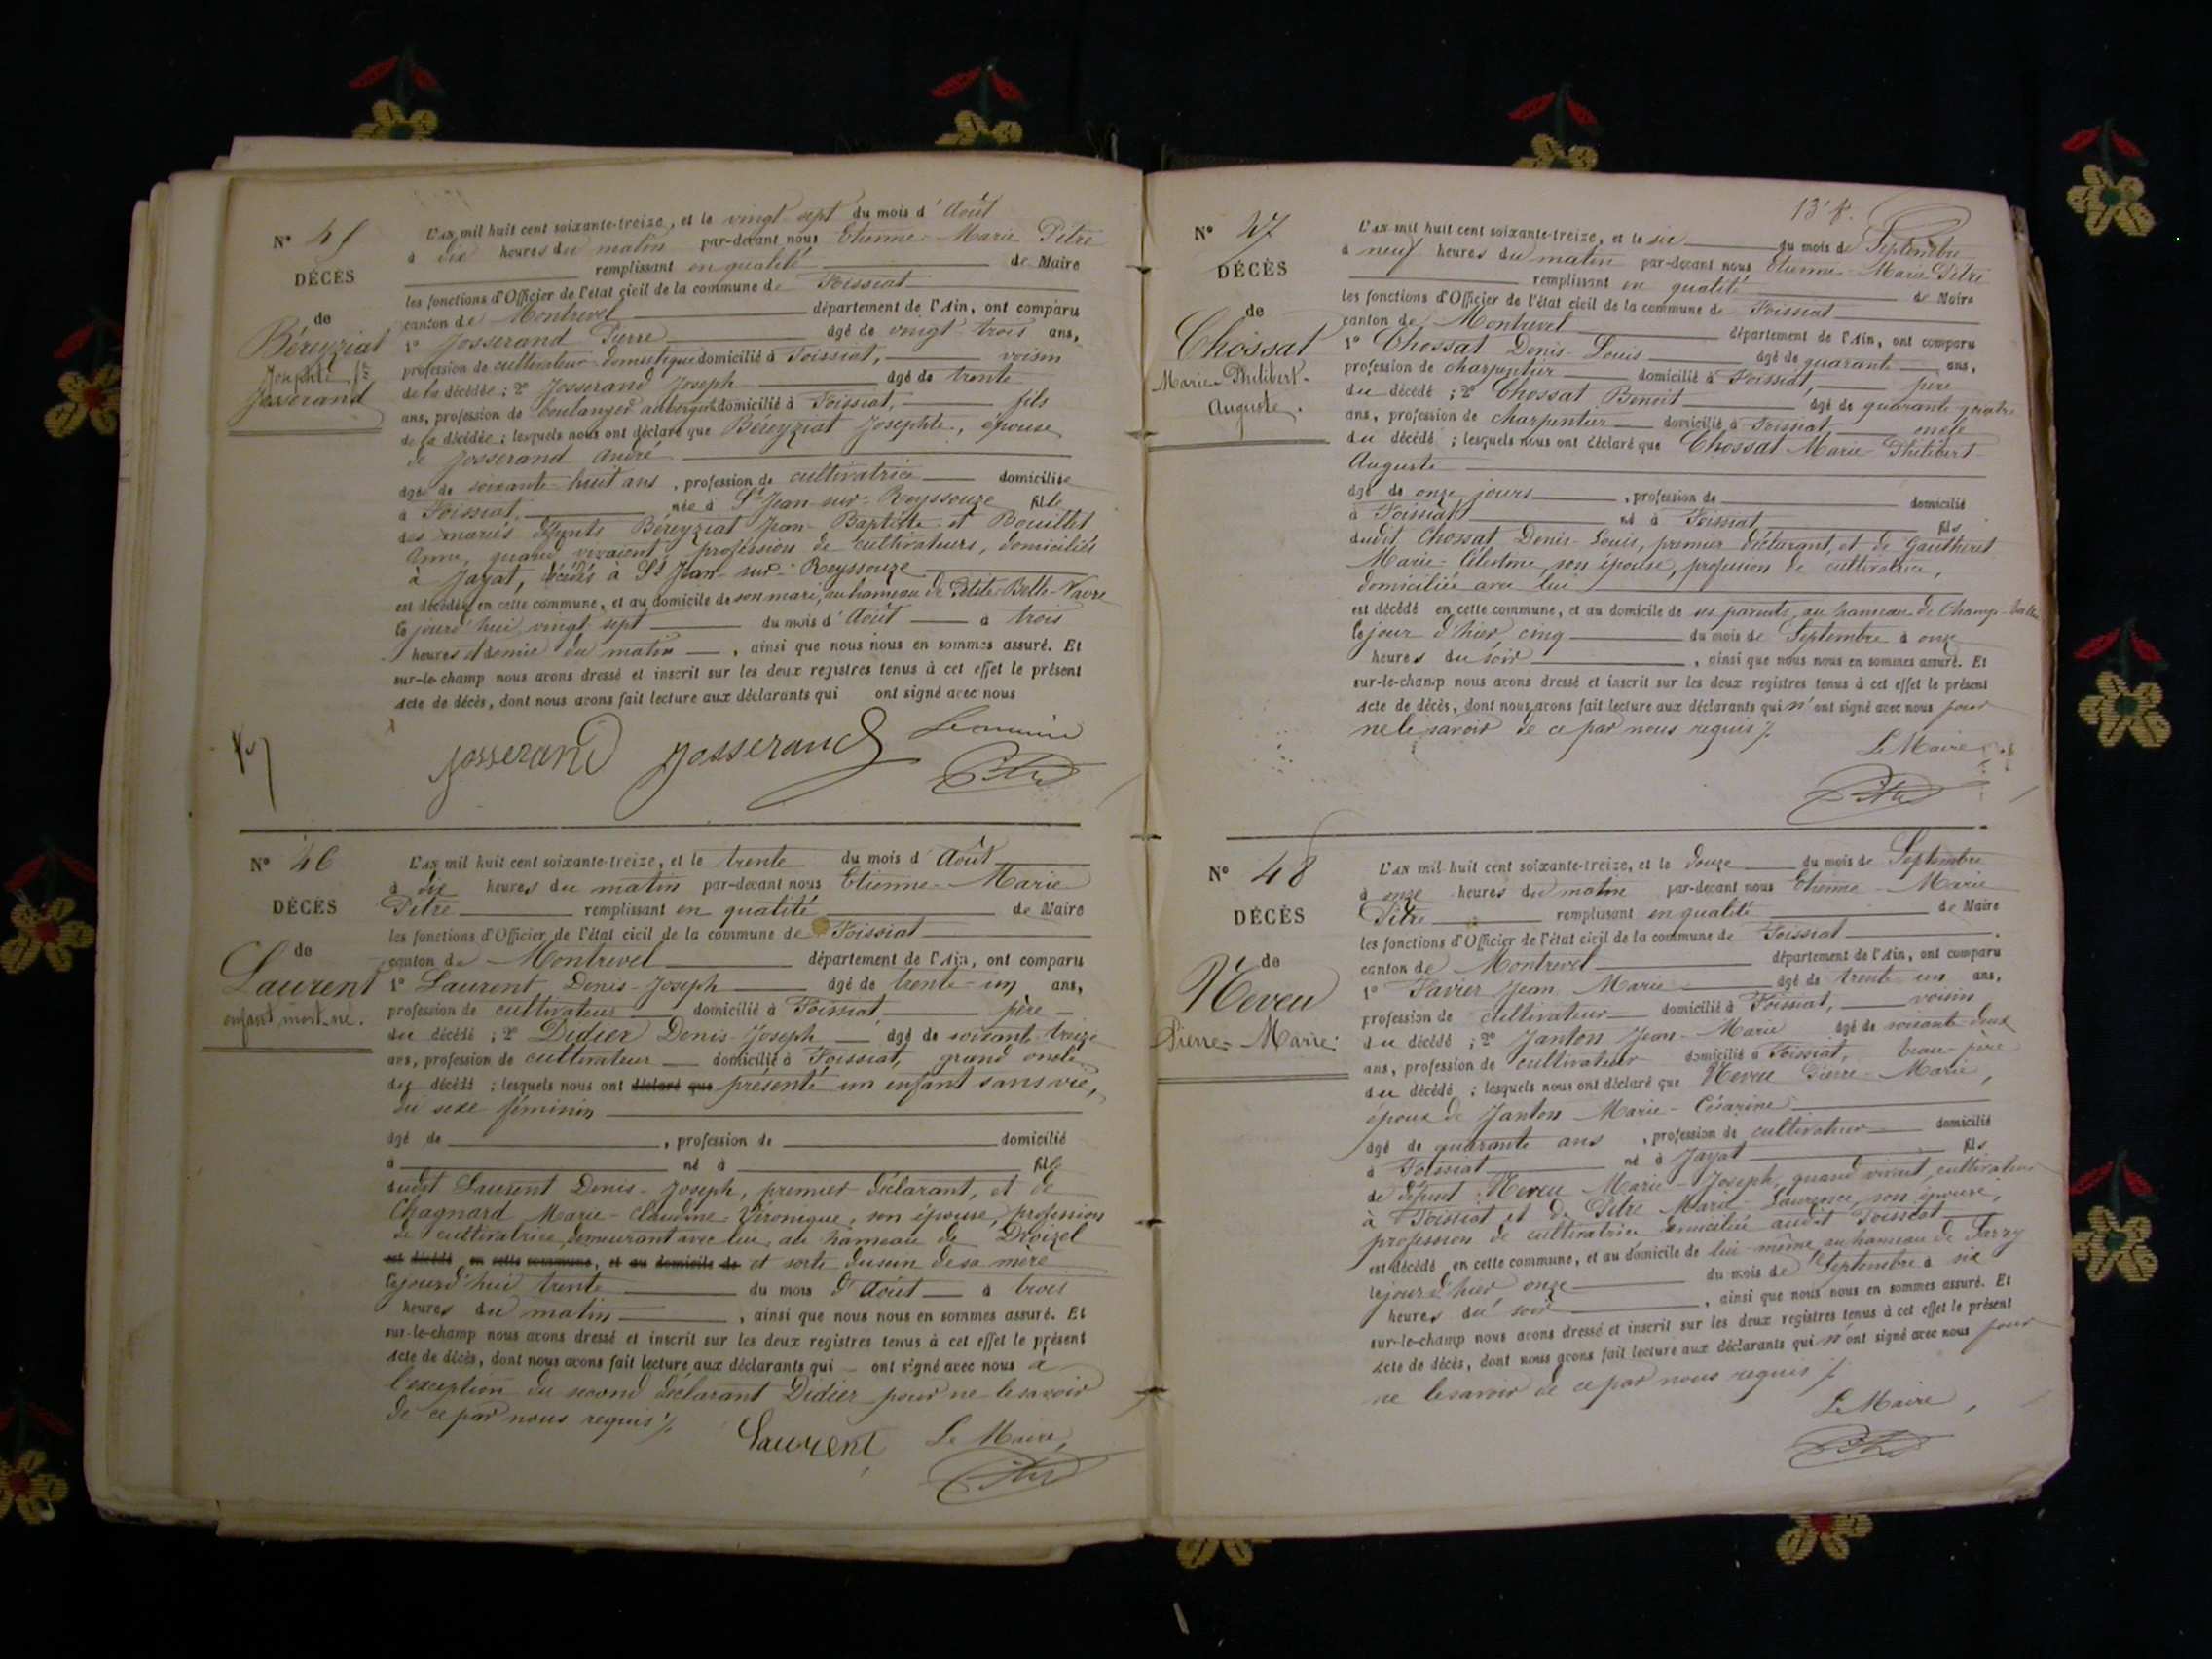 N° 45
DÉCÈS
de
Béreyziat
Josephte fe
Josserand
L'AN mil huit cent soixante-treize, et le vingt-sept du mois d'Août
à dix heures du matin par-devant nous Etienne-Marie Pitre
remplissant en qualité de Maire
les fonctions d'Officier de l'état civil de la commune de Foissiat
canton de Montrevel département de l'Ain, ont comparu
1° Josserand Pierre âgé de vingt-trois ans,
profession de cultivateur-domestique domicilié à Foissiat, voisin
de la décédée ; 2° Josserand Joseph âgé de trente
ans, profession de boulanger domicilié à Foissiat, fils
de la décédée ; lesquels nous ont déclaré que Béreyziat Josephte, épouse
de Josserand André
âgé de soixante-huit ans, profession de cultivatrice domiciliée
à Foissiat, née à St Jean-sur-Reyssouze fille
des mariés défunts Béreyziat Jean-Baptiste et Bouillet
Anne, quand vivaient profession de cultivateurs, domiciliés
à Jayat, décédés à St Jean-sur-Reyssouze
est décédée en cette commune, et au domicile de son mari, au hameau de Petite Belle-Vavre
lejourd'hui vingt-sept du mois d'Août à trois
heures et demie du matin, ainsi que nous nous en sommes assuré. Et
sur-le-champ nous avons dressé et inscrit sur les deux registres tenus à cet effet le présent
acte de décès, dont nous avons fait lecture aux déclarants qui ont signé avec nous
Josserand Josserand Le maire
Pitre
N° 46
DÉCÈS
de
Laurent
enfant mort-né.
L'AN mil huit cent soixante-treize, et le trente du mois d'Août
à dix heures du matin par-devant nous Etienne-Marie
Pitre remplissant en qualité de Maire
les fonctions d'Officier de l'état civil de la commune de Foissiat
canton de Montrevel département de l'Ain, ont comparu
1° Laurent Denis-Joseph âgé de trente-un ans,
profession de cultivateur domicilié à Foissiat père
du décédé ; 2° Didier Denis-Joseph âgé de soixante-treize
ans, profession de cultivateur domicilié à Foissiat, grand oncle
du décédé ; lesquels nous ont déclaré que présenté un enfant sans vie,
du sexe féminin
âgé de , profession de domicilié
à né à fille
dudit Laurent Denis-Joseph, premier déclarant, et de
Chagnard Marie-Claudine-Véronique, son épouse, profession
de cultivatrice, demeurant avec lui, au hameau de Droizel
est décédé en cette commune, et au domicile de et sorti du sein de sa mère
lejourd'hui trente du mois d'Août à trois
heures du matin, ainsi que nous nous en sommes assuré. Et
sur-le-champ nous avons dressé et inscrit sur les deux registres tenus à cet effet le présent
acte de décès, dont nous avons fait lecture aux déclarants qui ont signé avec nous à
l'exception du second déclarant Didier pour ne le savoir
de ce par nous requis ./.
Laurent Le Maire,
Pitre
N° 47
DÉCÈS
de
Chossat
Marie-Philibert-
Auguste.
L'AN mil huit cent soixante-treize, et le six du mois de Septembre
à neuf heures du matin par-devant nous Etienne-Marie Pitre
remplissant en qualité de Maire
les fonctions d'Officier de l'état civil de la commune de Foissiat
canton de Montrevel département de l'Ain, ont comparu
1° Chossat Denis-Louis âgé de quarante ans,
profession de charpentier domicilié à Foissiat, père
du décédé ; 2° Chossat Benoit âgé de quarante-quatre
ans, profession de charpentier domicilié à Foissiat oncle
du décédé ; lesquels nous ont déclaré que Chossat Marie Philibert
Auguste
âgé de onze jours, profession de domicilié
à Foissiat né à Foissiat fils
dudit Chossat Denis-Louis, premier déclarant, et de Gautheret
Marie-Célestine, son épouse, profession de cultivatrice,
domiciliée avec lui
est décédé en cette commune, et au domicile de ses parents, au hameau de Champ-
le jour d'hier, cinq du mois de Septembre à onze
heures du soir, ainsi que nous nous en sommes assuré. Et
sur-le-champ nous avons dressé et inscrit sur les deux registres tenus à cet effet le présent
acte de décès, dont nous avons fait lecture aux déclarants qui n'ont signé avec nous pour
ne le savoir de ce par nous requis ./.
Le Maire
Pitre
N° 48
DÉCÈS
de
Neveu
Pierre-Marie
L'AN mil huit cent soixante-treize, et le douze du mois de Septembre
à onze heures du matin par-devant nous Etienne-Marie
Pitre remplissant en qualité de Maire
les fonctions d'Officier de l'état civil de la commune de Foissiat
canton de Montrevel département de l'Ain, ont comparu
1° Favier Jean Marie âgé de trente-un ans,
profession de cultivateur domicilié à Foissiat, voisin
du décédé ; 2° Janton Jean-Marie âgé de soixante-deux
ans, profession de cultivateur domicilié à Foissiat, beau-père
du décédé ; lesquels nous ont déclaré que Neveu Pierre-Marie,
époux de Janton Marie-Césarine
âgé de quarante ans, profession de cultivateur domicilié
à Foissiat né à Jayat fils
de défunt Neveu Marie-Joseph, quand vivait, cultivateur
à Foissiat et de Pitre Marie-Laurence, son épouse,
profession de cultivatrice domiciliée audit Foissiat
est décédé en cette commune, et au domicile de lui-même au hameau de
le jour d'hier, onze du mois de Septembre à six
heures du soir, ainsi que nous nous en sommes assuré. Et
sur-le-champ nous avons dressé et inscrit sur les deux registres tenus à cet effet le présent
acte de décès, dont nous avons fait lecture aux déclarants qui n'ont signé avec nous pour
ne le savoir de ce par nous requis ./.
Le Maire,
Pitre